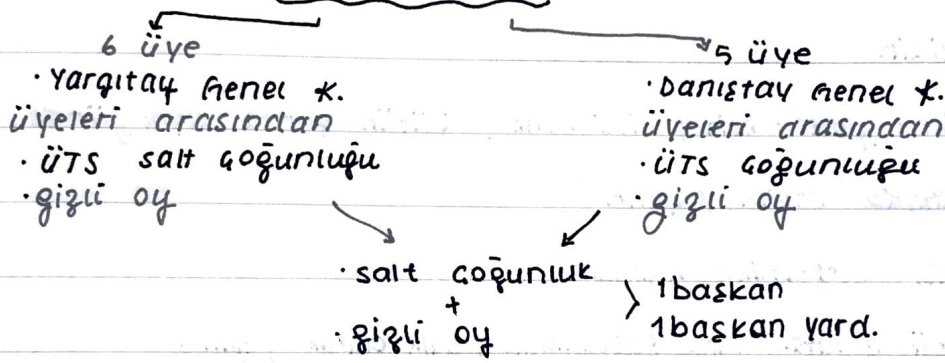 6 üye
· Yargıtay Genel K.
üyeleri arasından
· ÜTS salt çoğunluğu
· gizli oy
5 üye
· Danıştay Genel K.
üyeleri arasından
· ÜTS çoğunluğu
· gizli oy
· salt çoğunluk
+
· gizli oy
1 başkan
1 başkan yard.